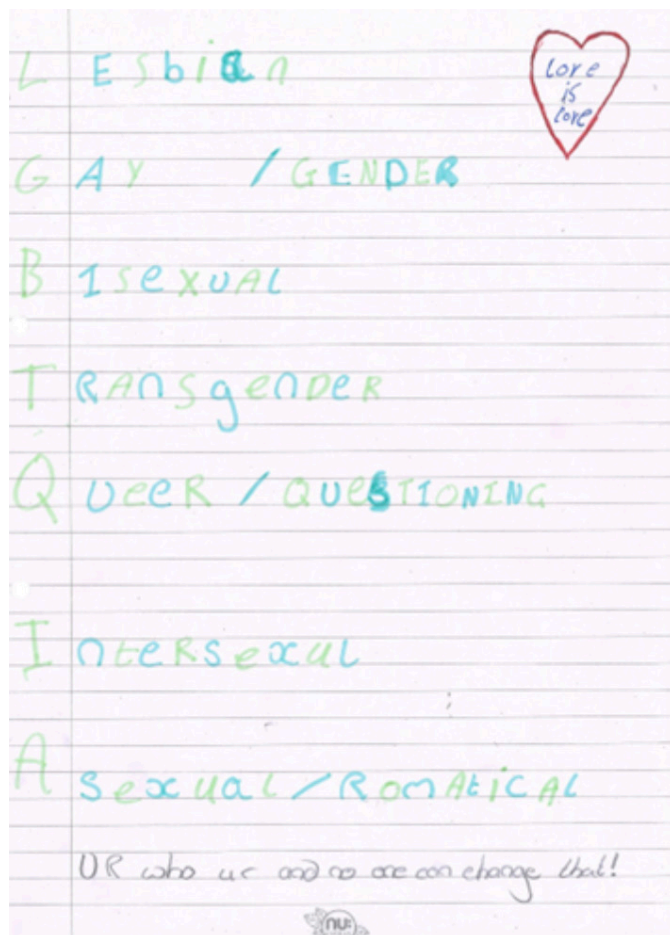 LEsbian
love
is
love
GAY / GENDER
BIseXUAL
TRAnSgenDeR
QUeeR / QUeSTIONING
InteRsexuL
ASexual/RomAtiCAL
UR who ur and no one can change that!
nu: